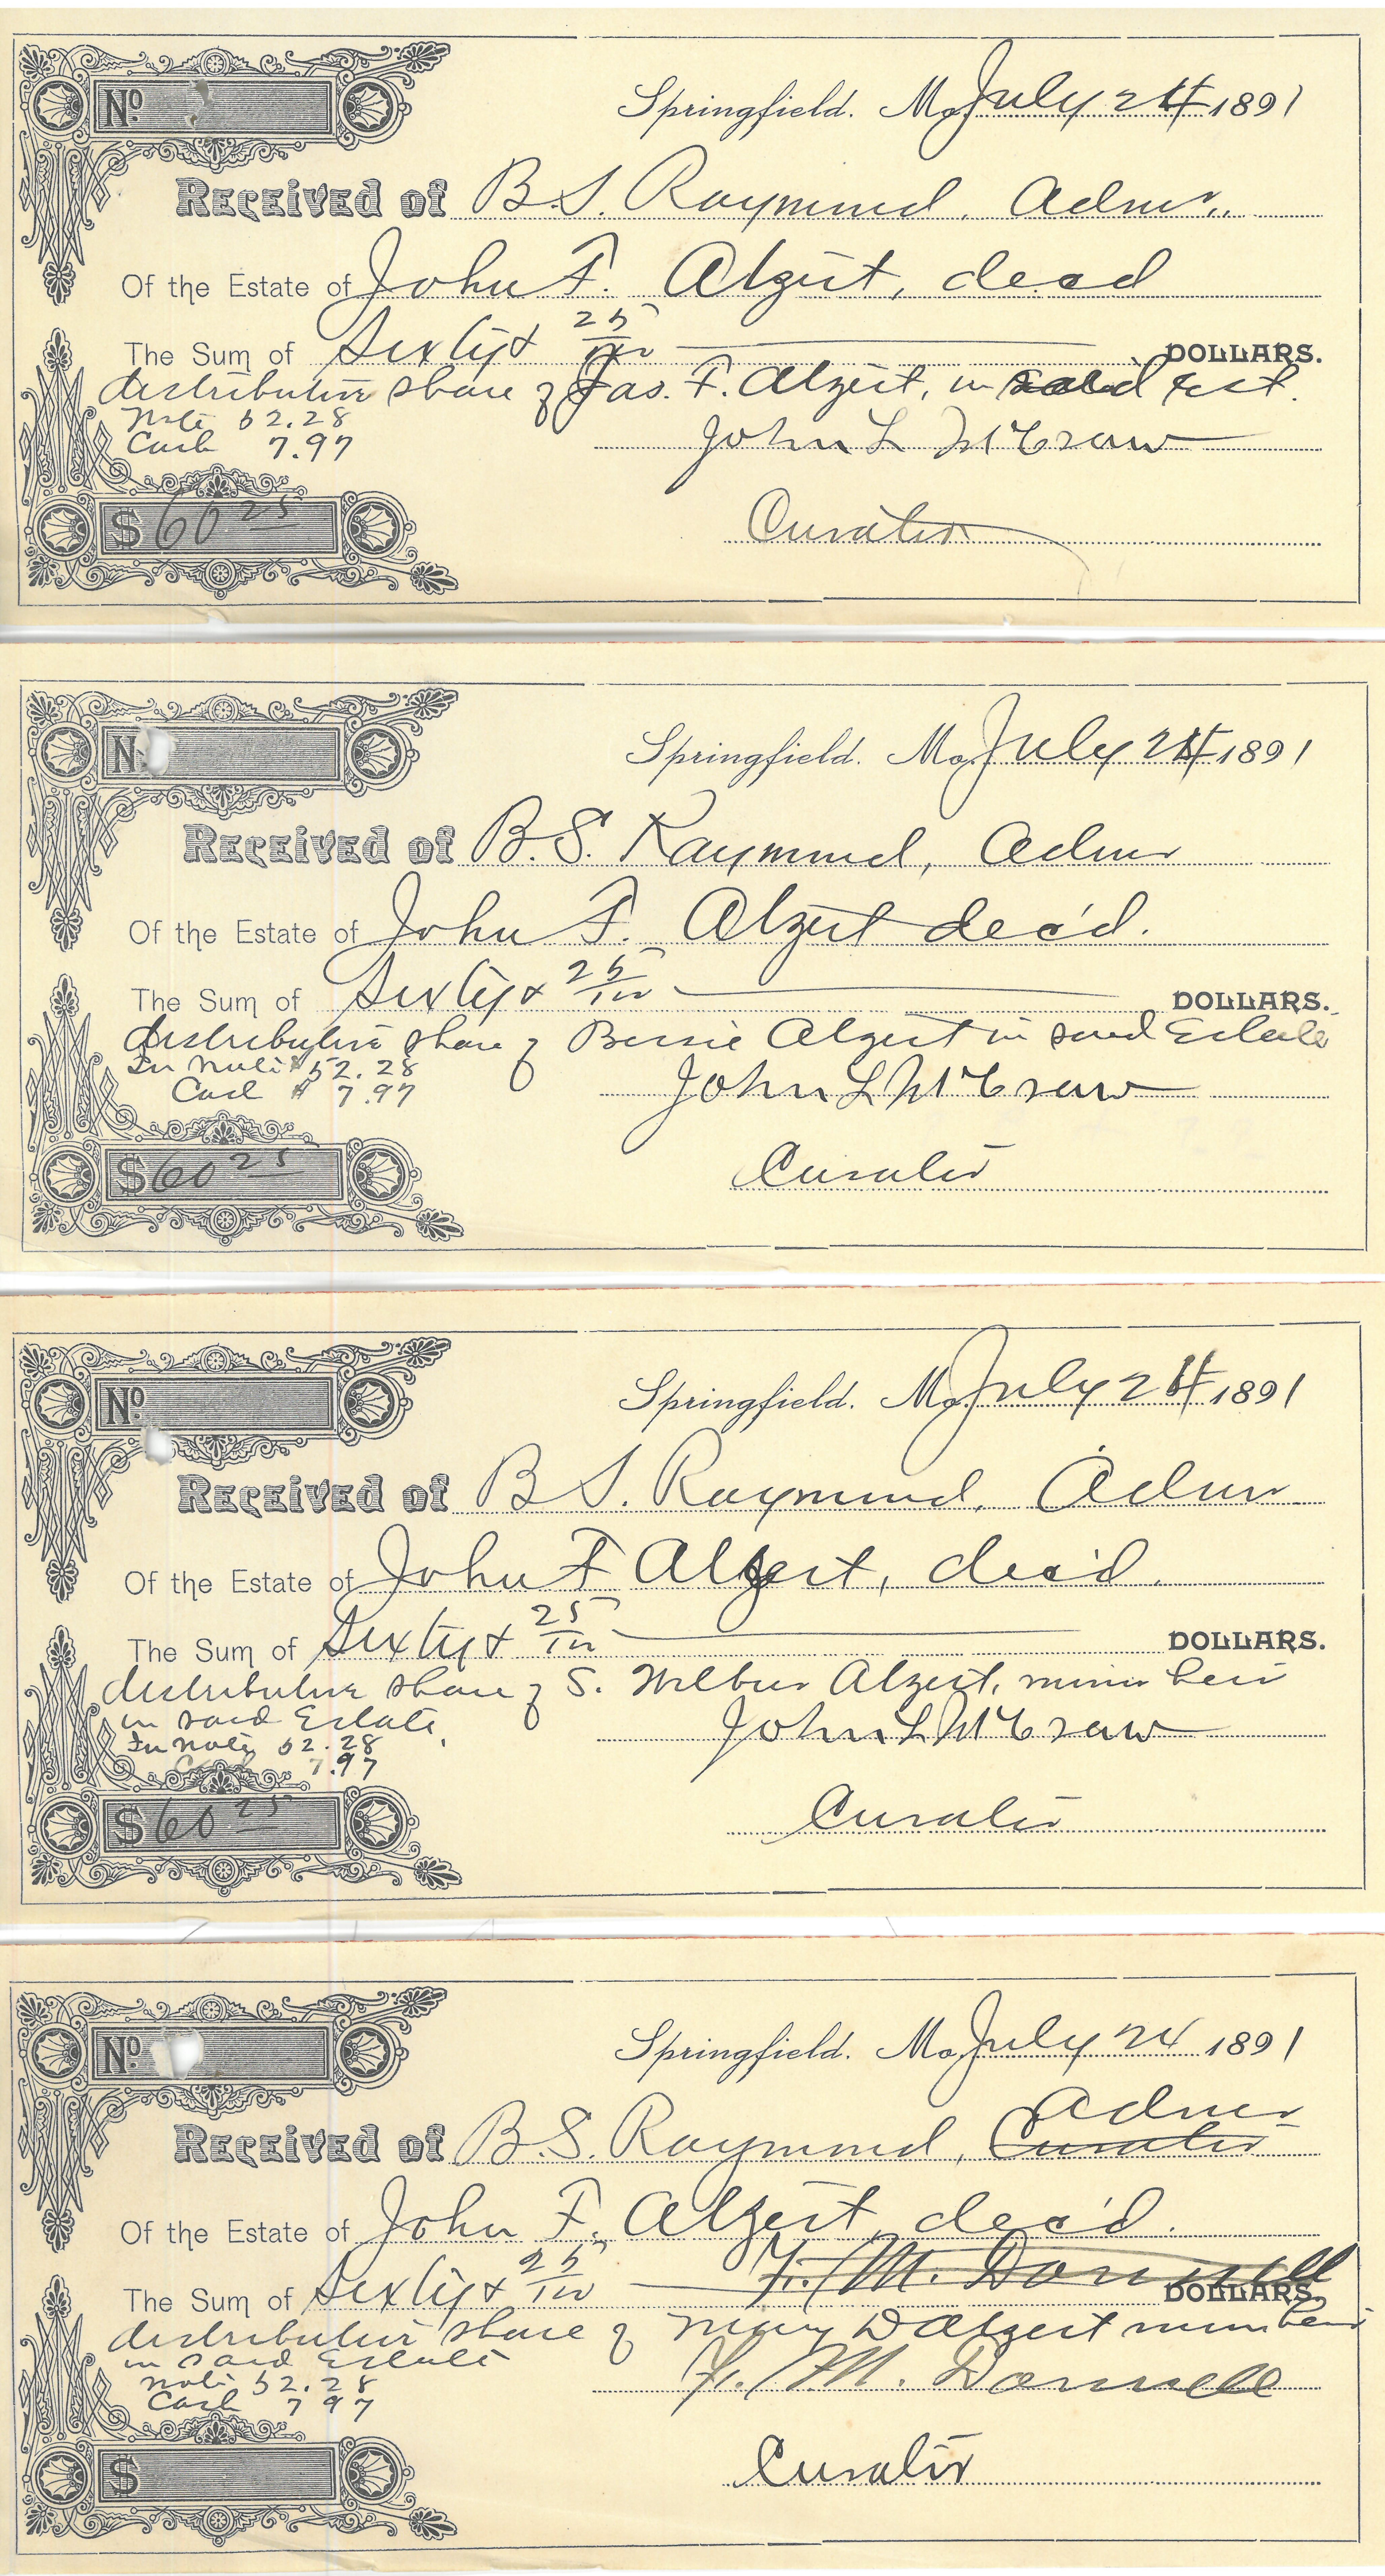 No
Springfield. Mo. July 24 1891
Received of B.S. Raymond, Admr.
Of the Estate of John F. Alzeit, decd
The Sum of Sixty & 25/100 DOLLARS.
distributive share of Jas. F. Alzeit, in said Est.
Note 52.28
Cash 7.97
John L McCraw
$ 60 25
Curator
No
Springfield. Mo. July 24 1891
Received of B.S. Raymond, Admr
Of the Estate of John F. Alzeit dec'd.
The Sum of Sixty & 25/100 DOLLARS.
distributive share of Bessie Alzeit in said Estate
In Note $52.28
Cash $ 7.97
John L McCraw
$ 60 25
Curator
No
Springfield. Mo. July 24 1891
Received of B S. Raymond, Admr
Of the Estate of John F Alzeit, dec'd.
The Sum of Sixty & 25/100 DOLLARS.
distributive share of S. Wilbur Alzeit, minor heir
in said Estate
In Note 52.28
Cash 7.97
John L McCraw
$ 60 25
Curator
No
Springfield. Mo. July 24 1891
Admr
Received of B.S. Raymond, Curator
Of the Estate of John F. Alzeit, dec'd.
F. M. Donnell
The Sum of Sixty & 25/100 DOLLARS.
distributive share of Mary D Alzeit minor heir
in said Estate
Note 52.28
Cash 7 97
F. M. Donnell
$
Curator